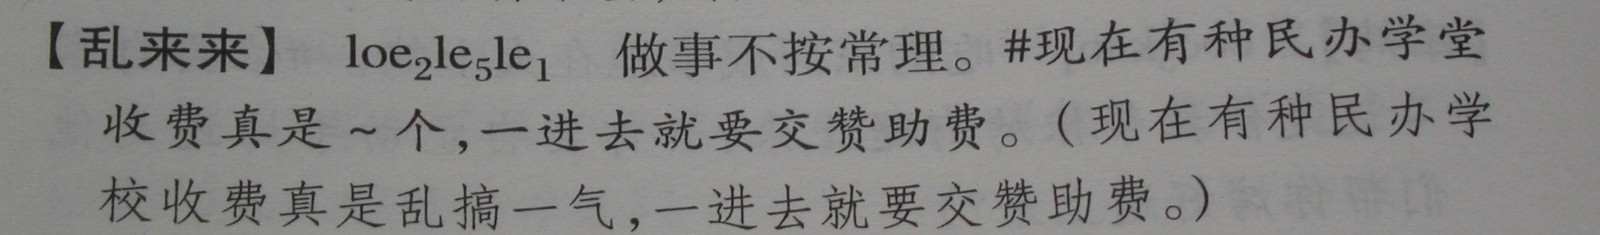 【乱来来】 loe₂le₅le₁ 做事不按常理。#现在有种民办学堂
收费真是～个,一进去就要交赞助费。(现在有种民办学
校收费真是乱搞一气,一进去就要交赞助费。)